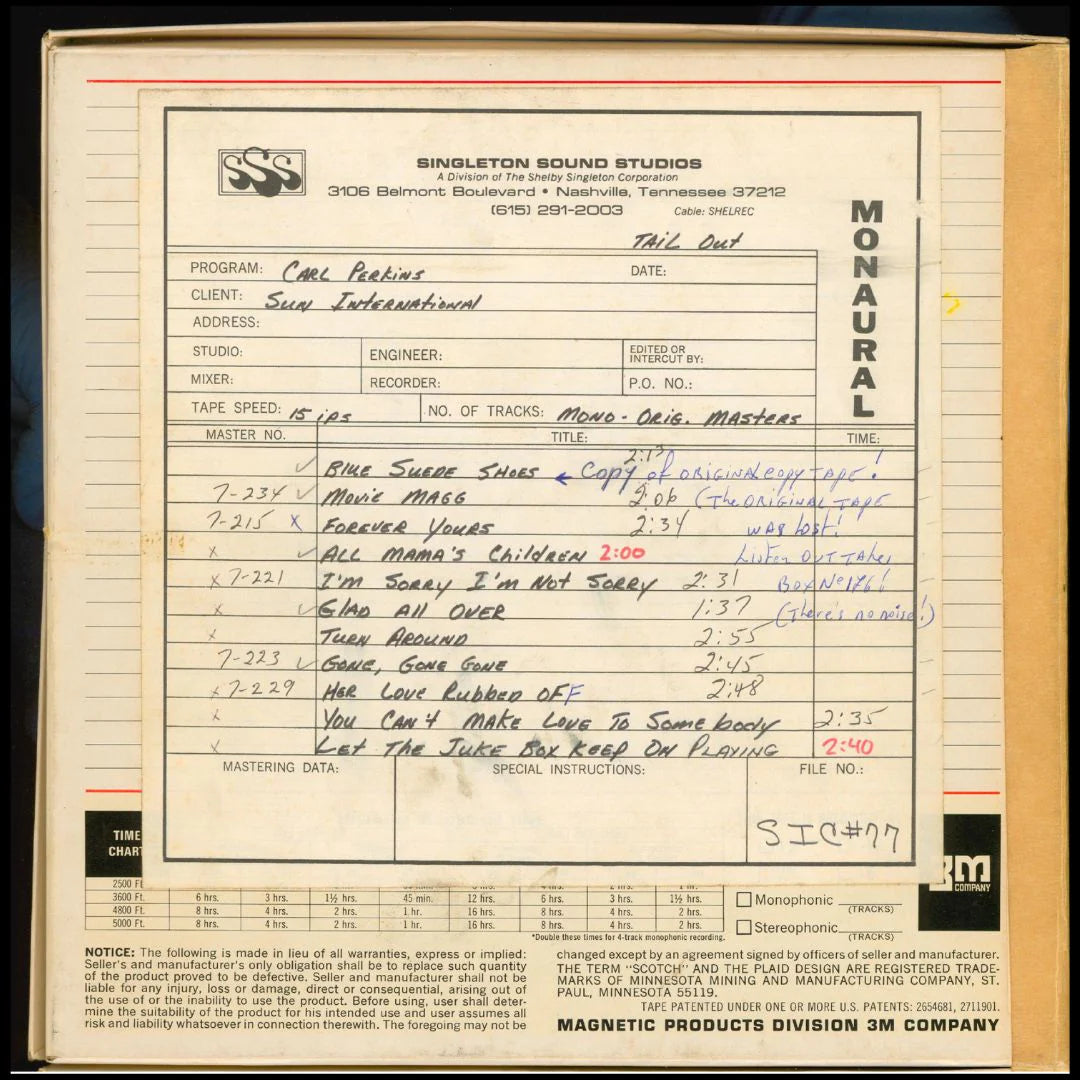 SSS
SINGLETON SOUND STUDIOS
A Division of The Shelby Singleton Corporation
3106 Belmont Boulevard • Nashville, Tennessee 37212
(615) 291-2003 Cable: SHELREC
MONAURAL
TAiL Out
PROGRAM: CARL PERKiNS DATE:
CLIENT: SUN INTERNATIONAL
ADDRESS:
STUDIO: ENGINEER: EDITED OR INTERCUT BY:
MIXER: RECORDER: P.O. NO.:
TAPE SPEED: 15 ips NO. OF TRACKS: MONO - ORIG. MASTERS
MASTER NO. TITLE: TIME:
✓ BlUE SUEDE SHOES 2:13 ← Copy of ORIGINAL COPY TAPE!
7-234 ✓ MOVIE MAGG 2:06 (The ORIGINAL TAPE
7-215 X FOREVER YOURS 2:34 WAS lost!
x ✓ ALL MAMA'S ChildREN 2:00 Listen OUT TAKE,
x 7-221 I'M SORRY I'M NOT SORRY 2:31 BOX Nº 176!
x ✓ GLAD All OVER 1:37 (There's no noise!)
x TURN AROUND 2:55
7-223 ✓ GONE, GONE GONE 2:45
x 7-229 HER LOVE RUBBED OFF 2:48
x YOU CAN'T MAKE LOVE TO SOMEbody 2:35
x LET THE JUKE BOX KEEP ON PLAYING 2:40
MASTERING DATA: SPECIAL INSTRUCTIONS: FILE NO.:
SIC#77
TIME
CHART
2500 Ft.
3600 Ft. 6 hrs. 3 hrs. 1½ hrs. 45 min. 12 hrs. 6 hrs. 3 hrs. 1½ hrs.
4800 Ft. 8 hrs. 4 hrs. 2 hrs. 1 hr. 16 hrs. 8 hrs. 4 hrs. 2 hrs.
5000 Ft. 8 hrs. 4 hrs. 2 hrs. 1 hr. 16 hrs. 8 hrs. 4 hrs. 2 hrs.
*Double these times for 4-track monophonic recording.
Monophonic (TRACKS)
Stereophonic (TRACKS)
3M
COMPANY
NOTICE: The following is made in lieu of all warranties, express or implied:
Seller's and manufacturer's only obligation shall be to replace such quantity
of the product proved to be defective. Seller and manufacturer shall not be
liable for any injury, loss or damage, direct or consequential, arising out of
the use of or the inability to use the product. Before using, user shall deter-
mine the suitability of the product for his intended use and user assumes all
risk and liability whatsoever in connection therewith. The foregoing may not be
changed except by an agreement signed by officers of seller and manufacturer.
THE TERM "SCOTCH" AND THE PLAID DESIGN ARE REGISTERED TRADE-
MARKS OF MINNESOTA MINING AND MANUFACTURING COMPANY, ST.
PAUL, MINNESOTA 55119.
TAPE PATENTED UNDER ONE OR MORE U.S. PATENTS: 2654681, 2711901.
MAGNETIC PRODUCTS DIVISION 3M COMPANY